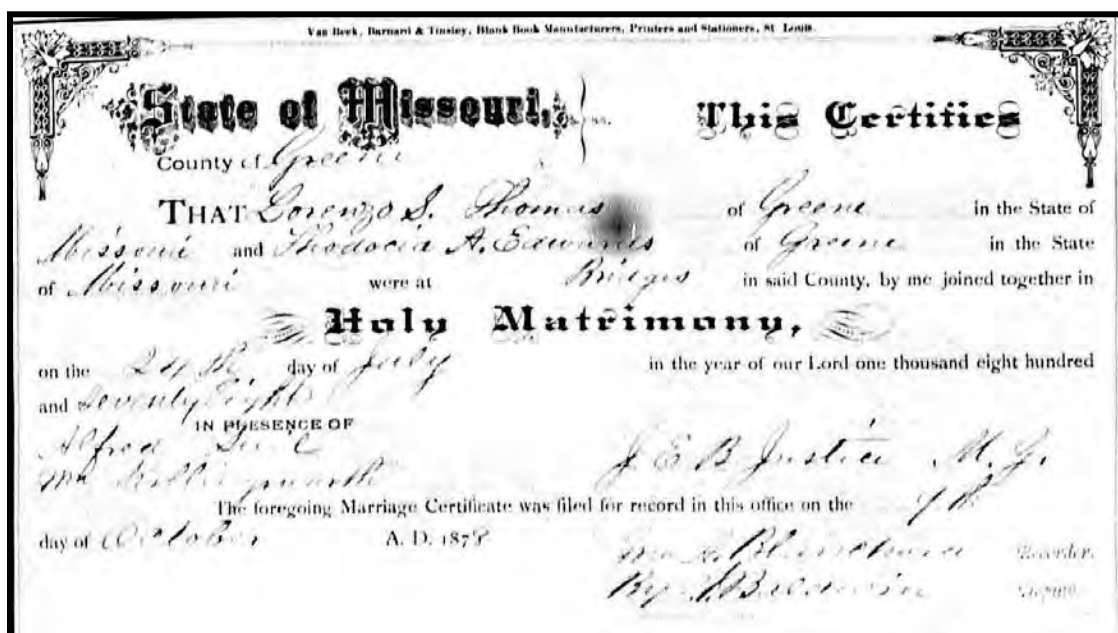 Van Beek, Barnard & Tinsley, Blank Book Manufacturers, Printers and Stationers, St. Louis.
State of Missouri, ss. This Certifies
County of Greene
THAT Lorenzo S. Thomas of Greene in the State of
Missouri and Thodocia A. Edwards of Greene in the State
of Missouri were at Bridges in said County, by me joined together in
Holy Matrimony,
on the 24th day of July in the year of our Lord one thousand eight hundred
and Seventy Eight
IN PRESENCE OF
Alfred
Wm J. E. B. Justice M. G.
The foregoing Marriage Certificate was filed for record in this office on the 7th
day of October A. D. 1878
Recorder.
By Baldwin Deputy.